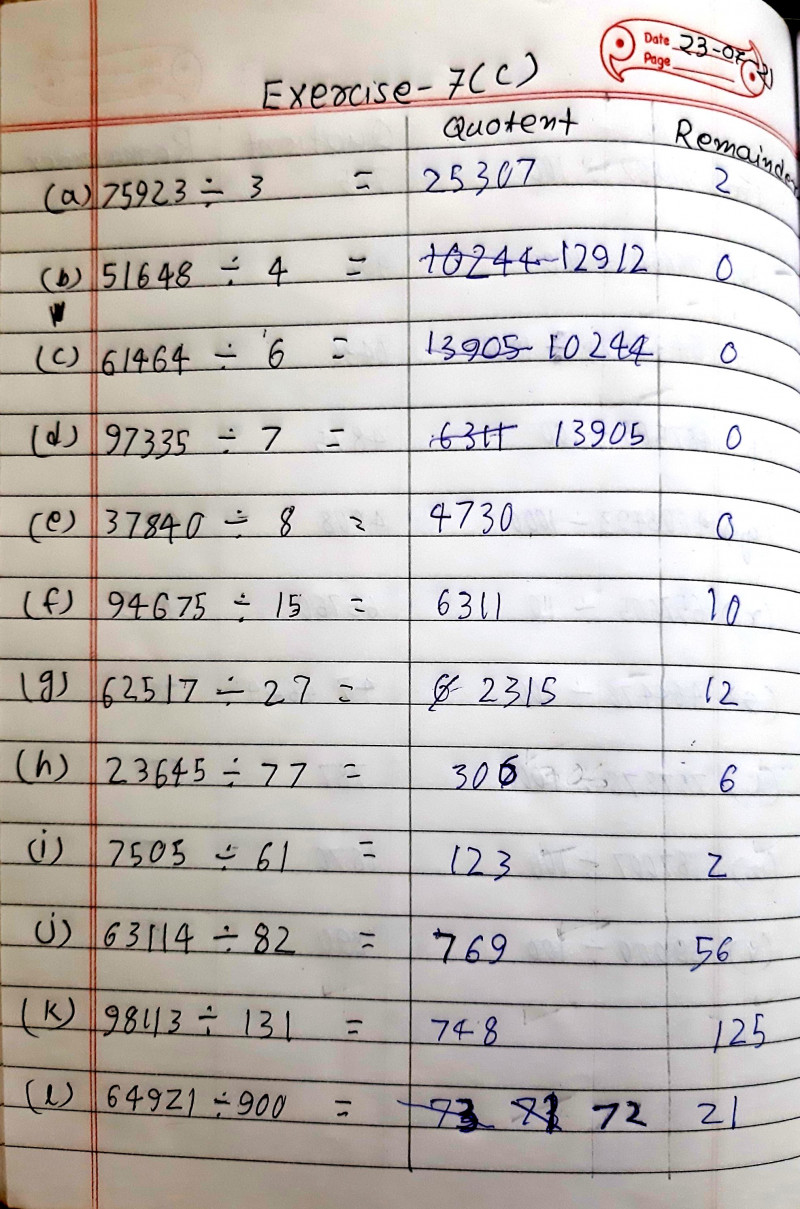 Date 23-07-21
Page
Exercise - 7(c)
Quotent Remainder
(a) 75923 ÷ 3 = 25307 2
(b) 51648 ÷ 4 = 10244 12912 0
(c) 61464 ÷ 6 = 13905 10244 0
(d) 97335 ÷ 7 = 6311 13905 0
(e) 37840 ÷ 8 = 4730 0
(f) 94675 ÷ 15 = 6311 10
(g) 62517 ÷ 27 = 2315 12
(h) 23645 ÷ 77 = 306 6
(i) 7505 ÷ 61 = 123 2
(j) 63114 ÷ 82 = 769 56
(k) 98113 ÷ 131 = 748 125
(l) 64921 ÷ 900 = 73 72 21